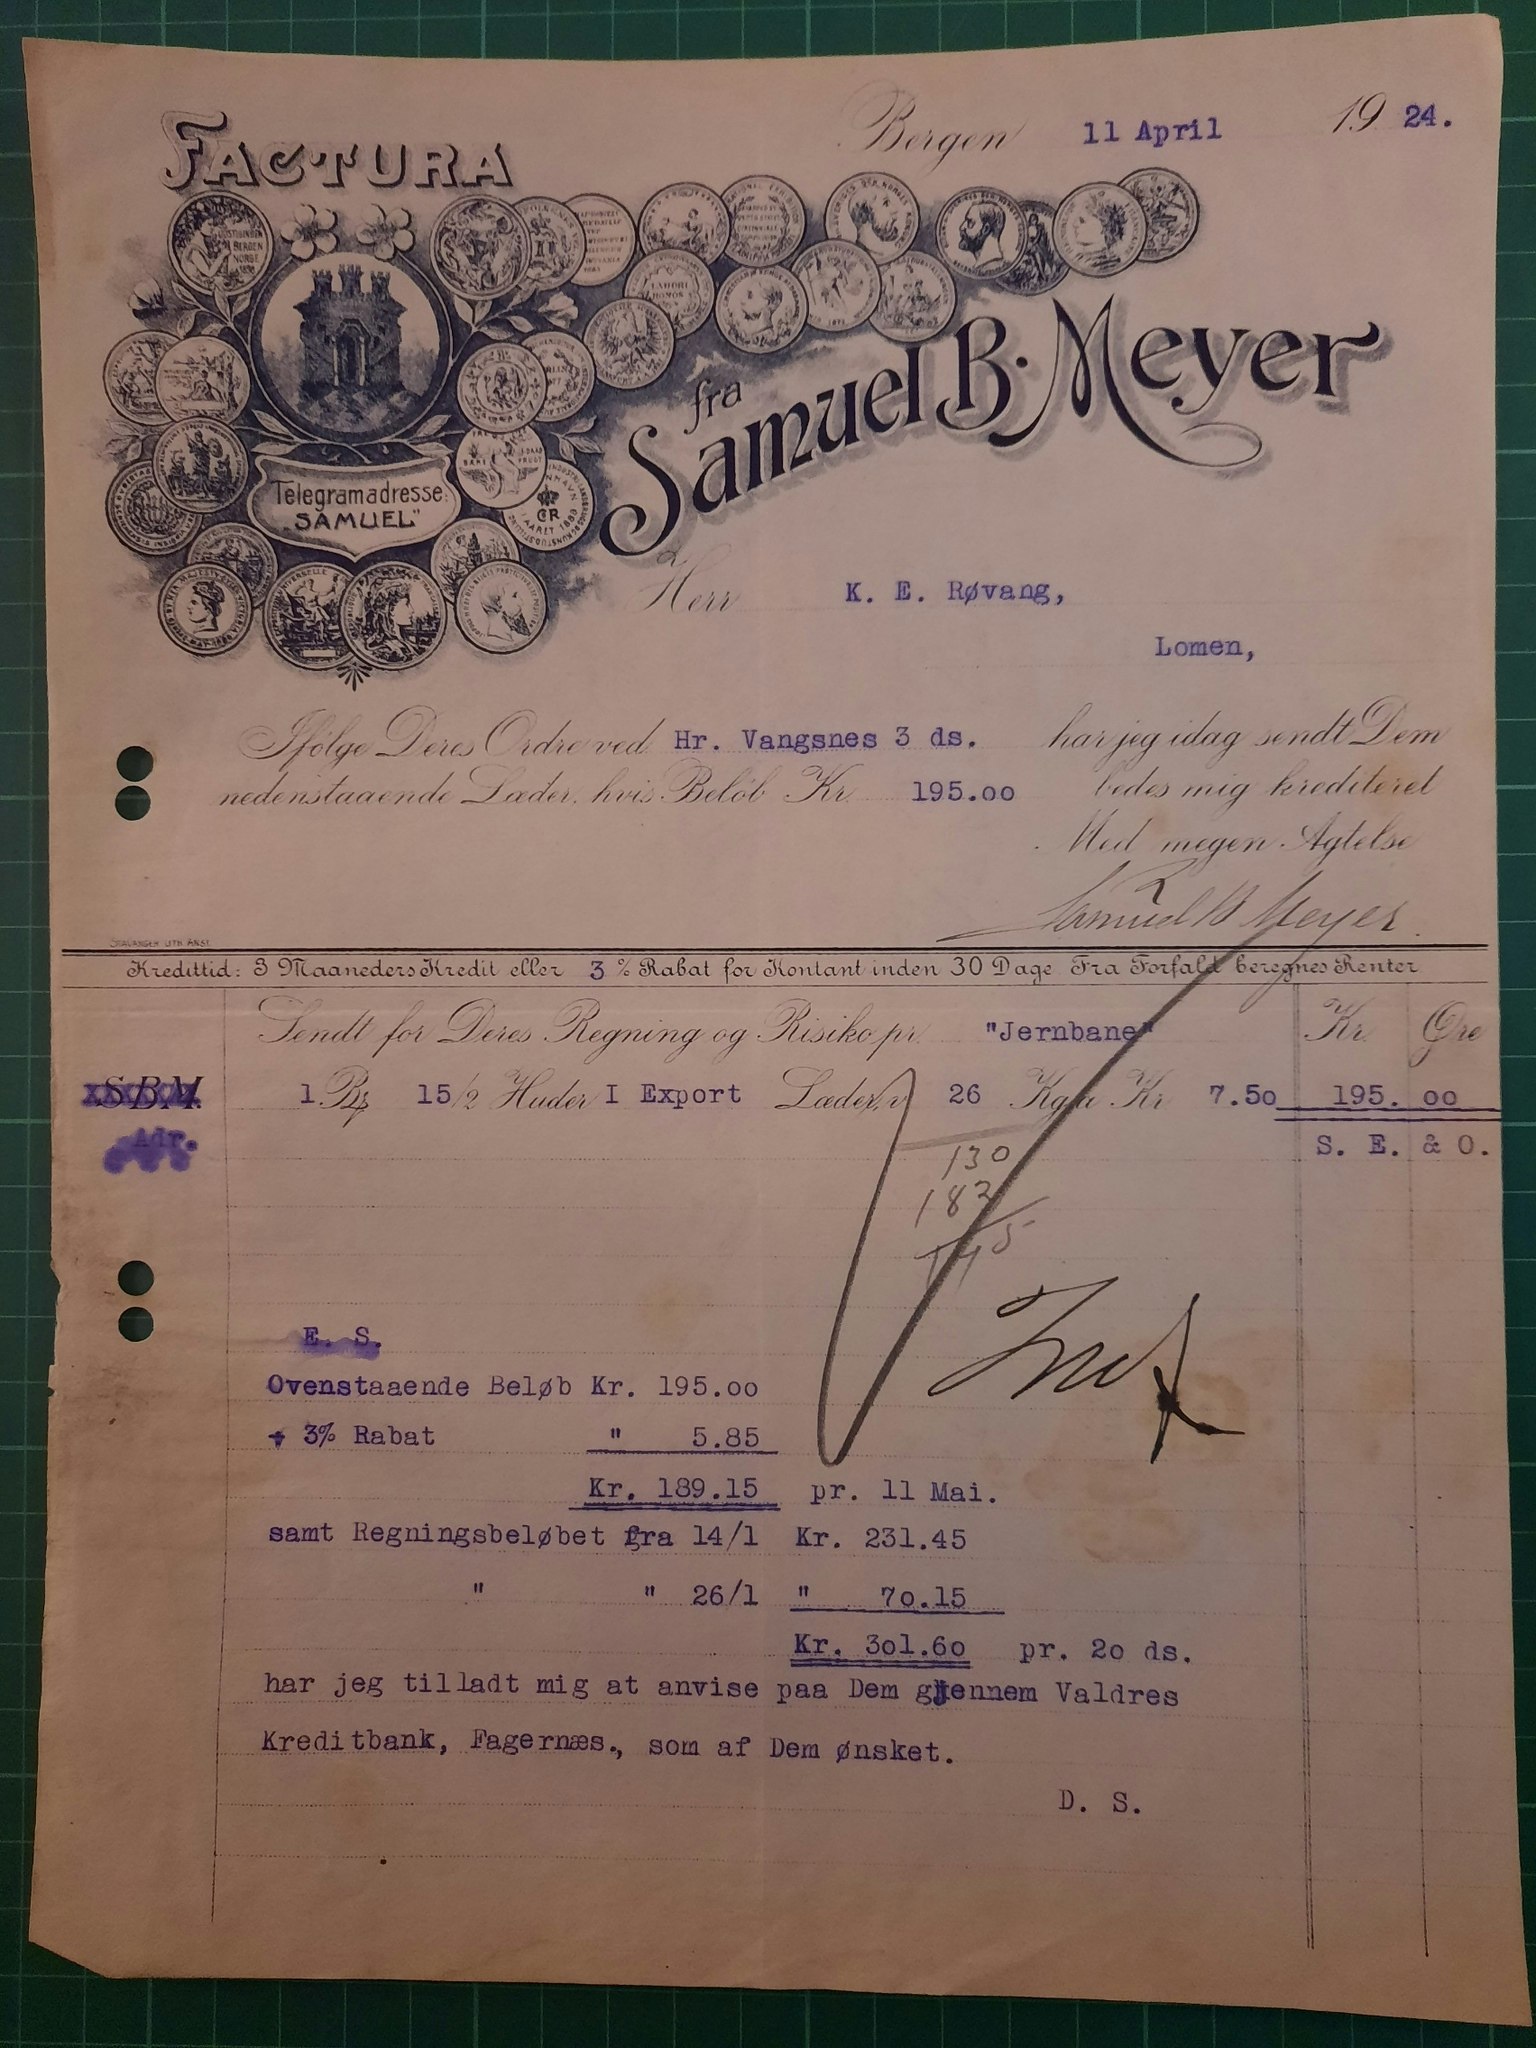 FACTURA
Bergen 11 April 1924.
fra
Samuel B. Meyer
Telegramadresse:
„SAMUEL"
Herr K. E. Røvang,
Lomen,
Ifölge Deres Ordre ved Hr. Vangsnes 3 ds. har jeg idag sendt Dem
nedenstaaende Læder, hvis Belöb Kr 195.oo bedes mig krediteret
Med megen Agtelse
Samuel B Meyer
STAVANGER LITH. ANST.
Kredittid: 3 Maaneders Kredit eller 3 % Rabat for Kontant inden 30 Dage. Fra Forfald beregnes Renter
Sendt for Deres Regning og Risiko pr. "Jernbane" Kr. Øre
S.B.M. 1 15/2 Huder I Export Læder, v. 26 Kg a Kr 7.5o 195. oo
Adr. S. E. & O.
130
183
E. S.
Ovenstaaende Beløb Kr. 195.oo
÷ 3% Rabat " 5.85
Kr. 189.15 pr. 11 Mai.
samt Regningsbeløbet fra 14/1 Kr. 231.45
" " 26/1 " 7o.15
Kr. 3o1.6o pr. 2o ds.
har jeg tilladt mig at anvise paa Dem gjennem Valdres
Kreditbank, Fagernæs., som af Dem ønsket.
D. S.